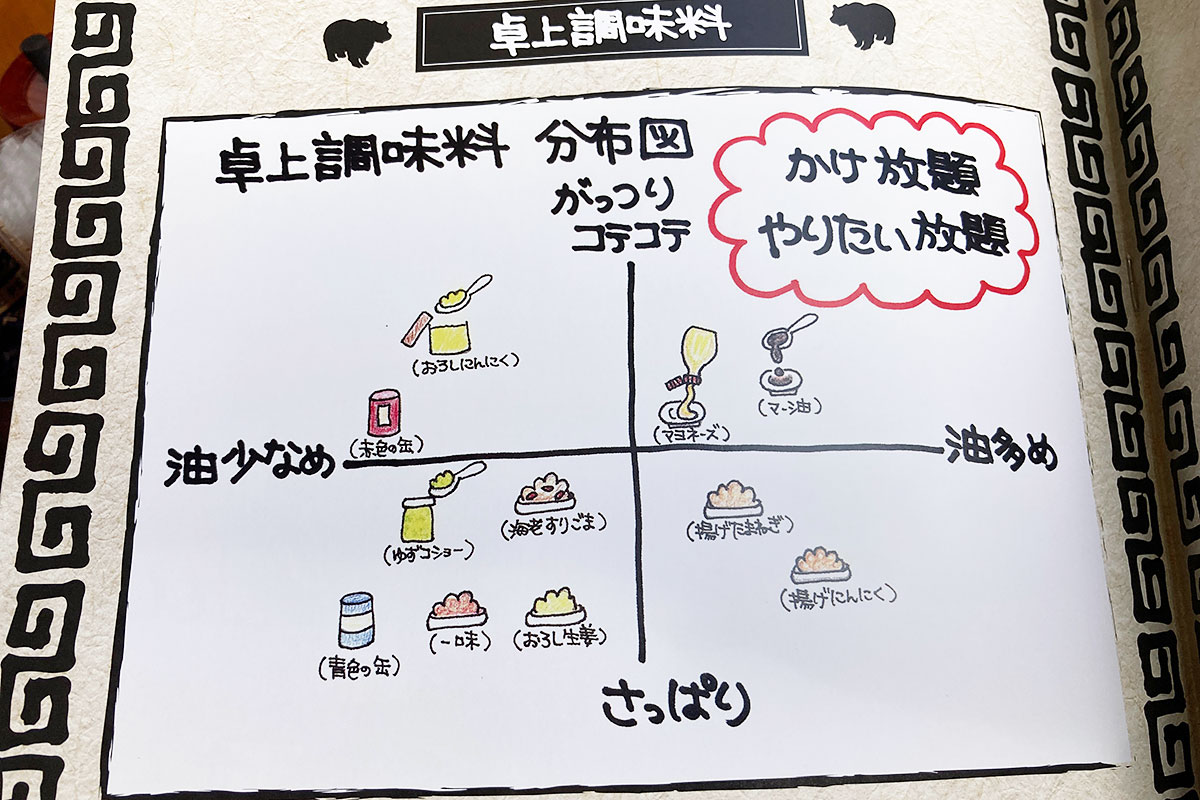 卓上調味料
卓上調味料 分布図
かけ放題
やりたい放題
がっつり
コテコテ
(おろしにんにく)
(赤色の缶)
(マヨネーズ)
(マー油)
油少なめ
油多め
(ゆずコショー)
(海老すりごま)
(揚げたまねぎ)
(揚げにんにく)
(青色の缶)
(一味)
(おろし生姜)
さっぱり